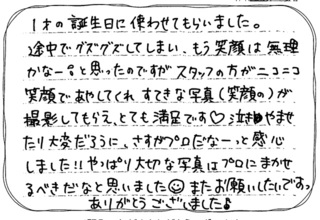 1才の誕生日に使わせてもらいました。
途中でグズグズしてしまい、もう笑顔は無理
かな…。と思ったのですがスタッフの方がニコニコ
笑顔であやしてくれ すてきな写真(笑顔の)が
撮影してもらえ、とても満足です♡泣きやませ
たり大変だろうに、さすがプロだなーっと感心
しました!!やっぱり大切な写真はプロにまかせ
るべきだなと思いました☺またお願いしたいですっ
ありがとうございました♪